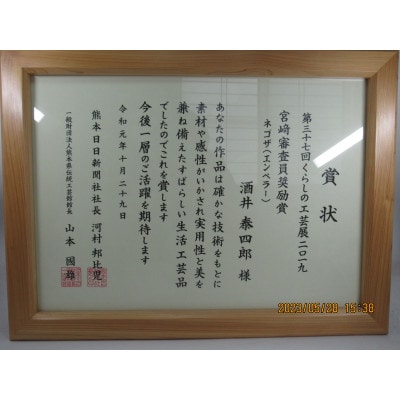 賞状
第三十七回くらしの工芸展二〇一九
宮崎審査員奨励賞
ネコザ（エンペラー）
酒井泰四郎様
あなたの作品は確かな技術をもとに
素材や感性がいかされ実用性と美を
兼ね備えたすばらしい生活工芸品
でしたのでこれを賞します
今後一層のご活躍を期待します
令和元年十月二十九日
熊本日日新聞社社長 河村邦比児
一般財団法人熊本県伝統工芸館館長 山本國雄
2023/05/28 15:38